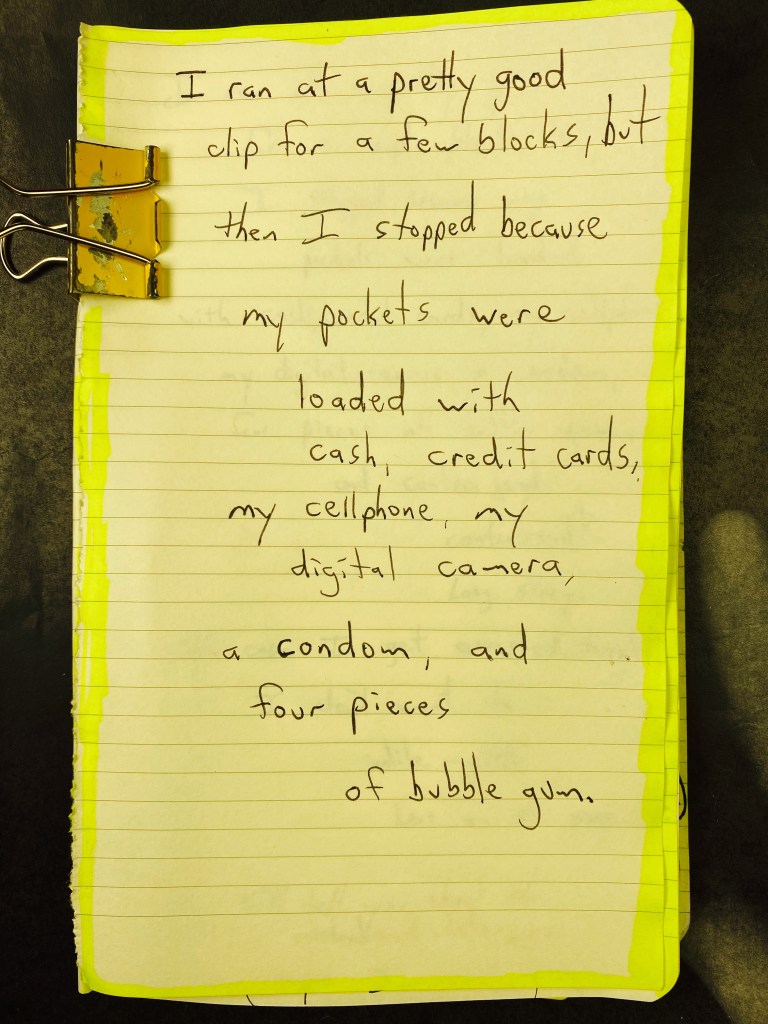 I ran at a pretty good
clip for a few blocks, but
then I stopped because
my pockets were
loaded with
cash, credit cards,
my cellphone, my
digital camera,
a condom, and
four pieces
of bubble gum.